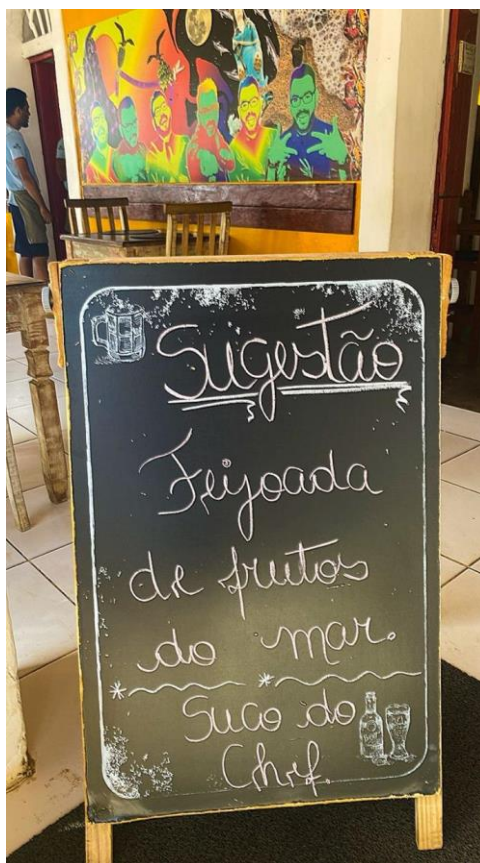 Sugestão
Feijoada
de frutos
do mar.
Suco do
Chef.